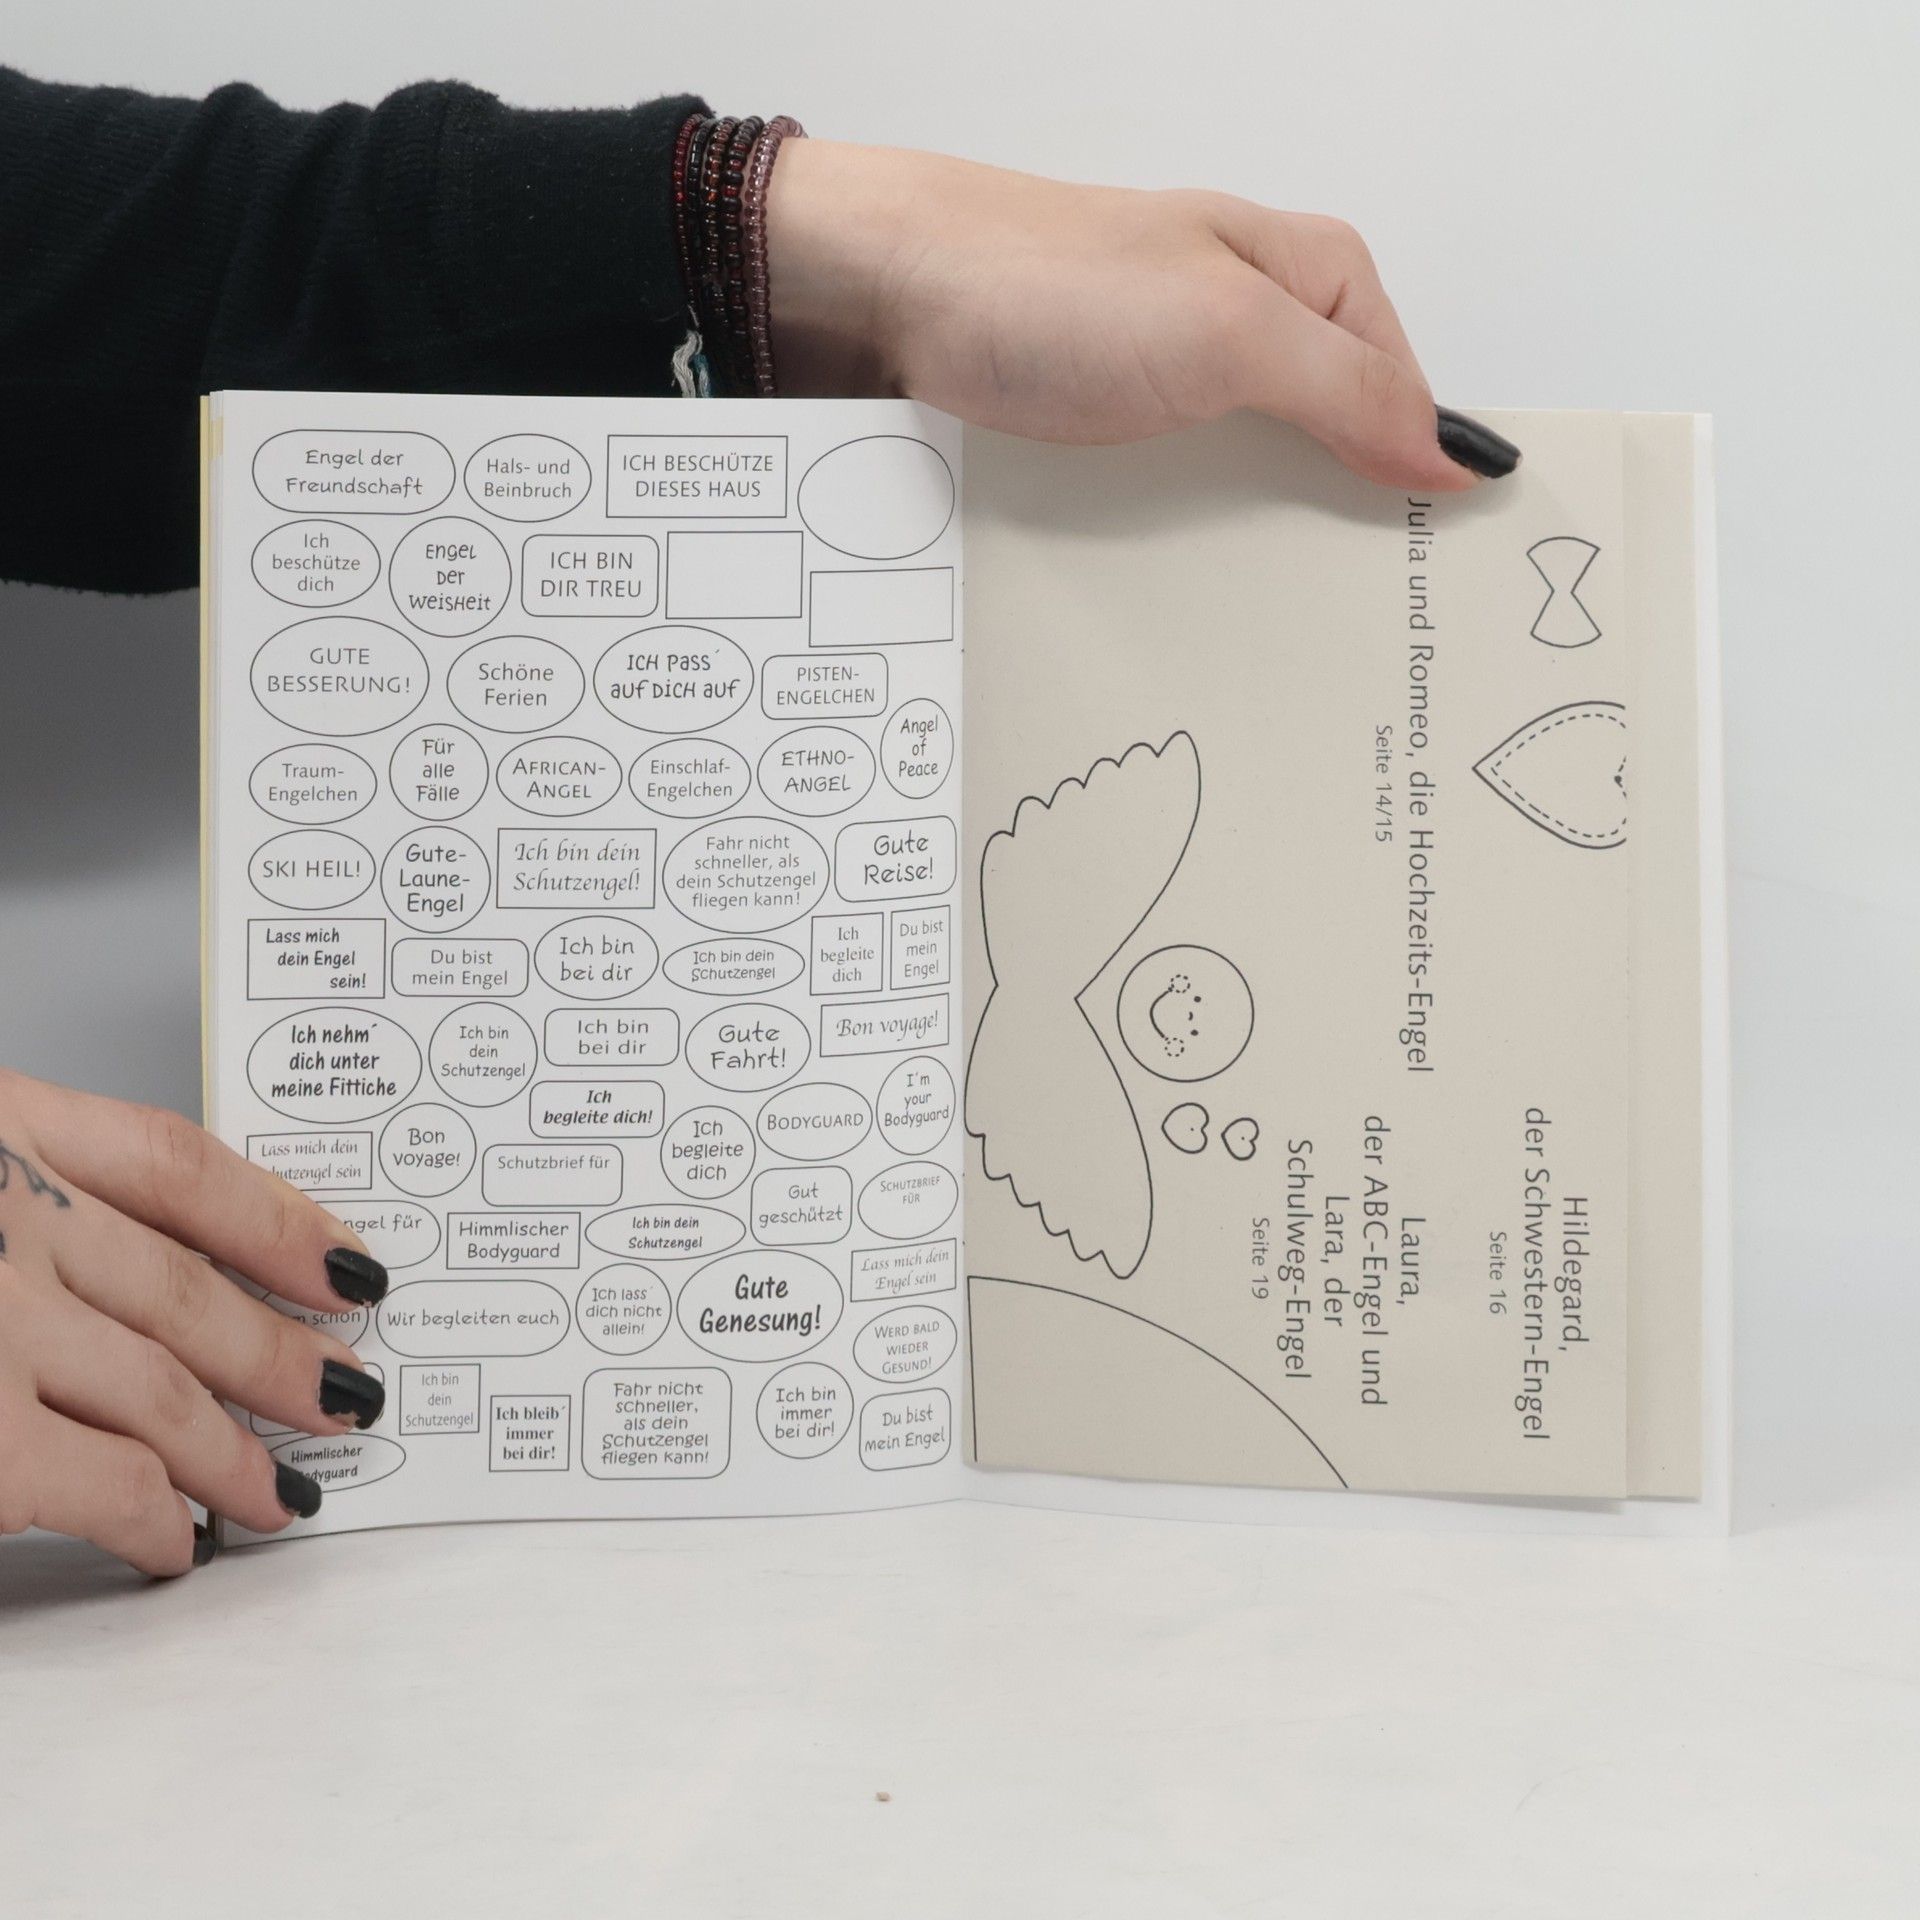 Engel der
Freundschaft
Hals- und
Beinbruch
ICH BESCHÜTZE
DIESES HAUS
Ich
beschütze
dich
Engel
Der
Weisheit
ICH BIN
DIR TREU
GUTE
BESSERUNG!
Schöne
Ferien
ICH Pass´
auf DICH auf
PISTEN-
ENGELCHEN
Traum-
Engelchen
Für
alle
Fälle
AFRICAN-
ANGEL
Einschlaf-
Engelchen
ETHNO-
ANGEL
Angel
of
Peace
SKI HEIL!
Gute-
Laune-
Engel
Ich bin dein
Schutzengel!
Fahr nicht
schneller, als
dein Schutzengel
fliegen kann!
Gute
Reise!
Lass mich
dein Engel
sein!
Du bist
mein Engel
Ich bin
bei dir
Ich bin dein
Schutzengel
Ich
begleite
dich
Du bist
mein
Engel
Ich nehm´
dich unter
meine Fittiche
Ich bin
dein
Schutzengel
Ich bin
bei dir
Gute
Fahrt!
Bon voyage!
Ich
begleite dich!
Lass mich dein
sein
Bon
voyage!
Schutzbrief für
Ich
begleite
dich
BODYGUARD
I´m
your
Bodyguard
für
Himmlischer
Bodyguard
Ich bin dein
Schutzengel
Gut
geschützt
SCHUTZBRIEF
FÜR
schon
Wir begleiten euch
Ich lass´
dich nicht
allein!
Gute
Genesung!
Lass mich dein
Engel sein
WERD BALD
WIEDER
GESUND!
Ich bin
dein
Schutzengel
Ich bleib´
immer
bei dir!
Fahr nicht
schneller,
als dein
Schutzengel
fliegen kann!
Ich bin
immer
bei dir!
Du bist
mein Engel
Himmlischer
Julia und Romeo, die Hochzeits-Engel
Seite 14/15
Hildegard,
der Schwestern-Engel
Seite 16
Laura,
der ABC-Engel und
Lara, der
Schulweg-Engel
Seite 19